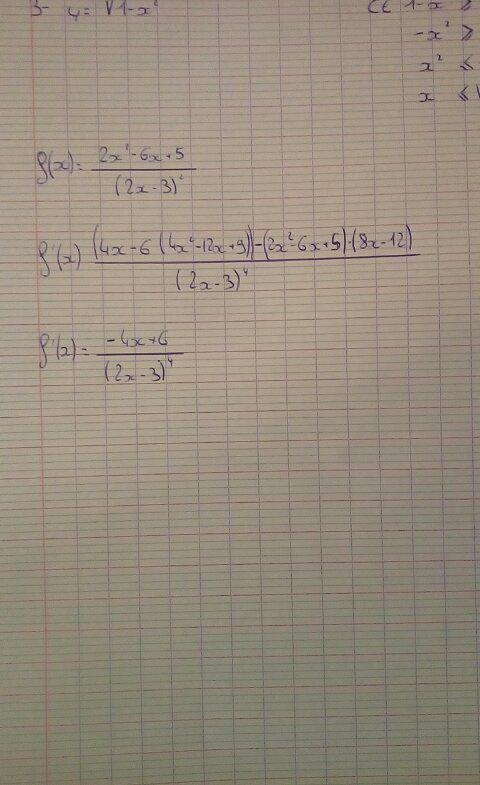 3- y = √1-x²
CE 1-x ≥
-x² ≥
x² ≤
x ≤ 1
f(x) = 2x²-6x+5 / (2x-3)²
f'(x) (4x-6 (4x²-12x+9))-(2x²-6x+5)·(8x-12) / (2x-3)⁴
f'(x) = -4x+6 / (2x-3)⁴